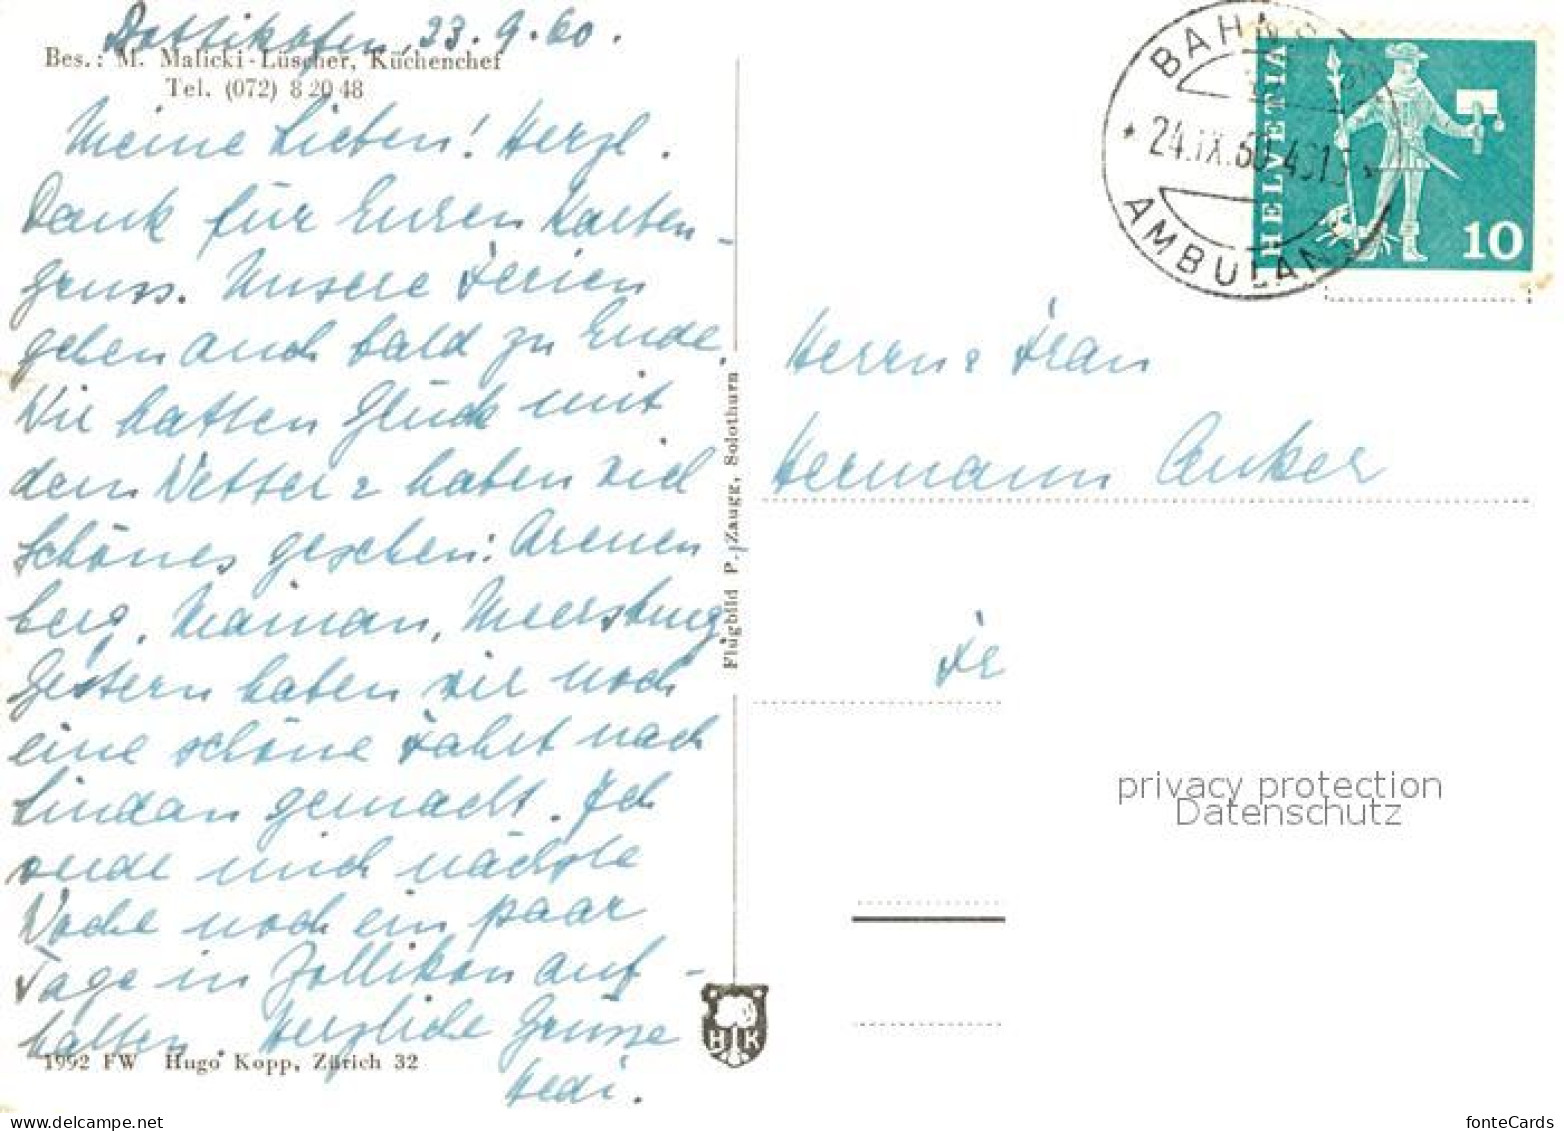 Dottikofen, 23.9.60.
Bes.: M. Malicki-Lüscher, Küchenchef
Tel. (072) 8 20 48
Meine Lieben! Herzl.
Dank für Euren Karten-
gruss. Unsere Ferien
gehen auch bald zu Ende.
Wir hatten Glück mit
dem Wetter & haben viel
Schönes gesehen: Arenen
berg, Mainau, Meersburg
Gestern haben wir noch
eine schöne Fahrt nach
Lindau gemacht. Ich
werde mich nächste
Woche noch ein paar
Tage in Zollikon auf-
halten. Herzliche Grüsse
Hedi.
1992 FW Hugo Kopp, Zürich 32
Flugbild P. Zaugg, Solothurn
HK
BAHNPO
24.IX.60
AMBULANT
HELVETIA
10
Herrn & Frau
Hermann Anker
Fr
privacy protection
Datenschutz
www.delcampe.net
fonteCards